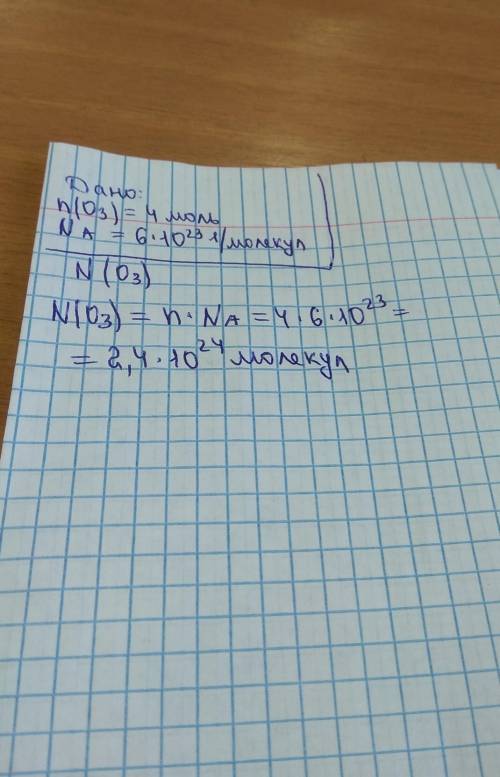 Дано:
n(O₃) = 4 моль
NA = 6·10²³ 1/молекул
N(O₃)
N(O₃) = n·NA = 4·6·10²³ =
= 2,4·10²⁴ молекул